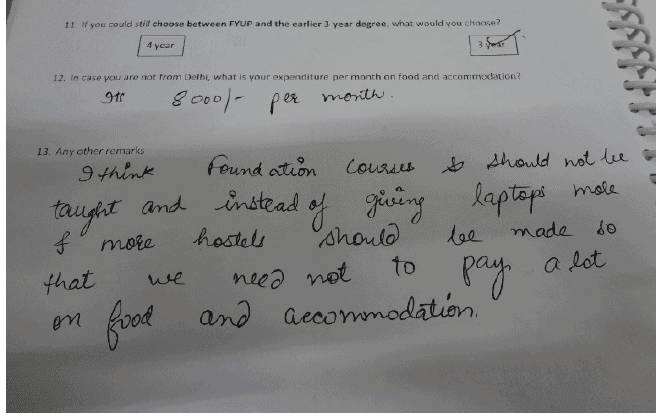 11. If you could still choose between FYUP and the earlier 3 year degree, what would you choose?
4 year 3 year
12. In case you are not from Delhi, what is your expenditure per month on food and accommodation?
Its 8000/- per month.
13. Any other remarks
I think Foundation courses should not be
taught and instead of giving laptops more
& more hostels should be made so
that we need not to pay a lot
on food and accommodation.